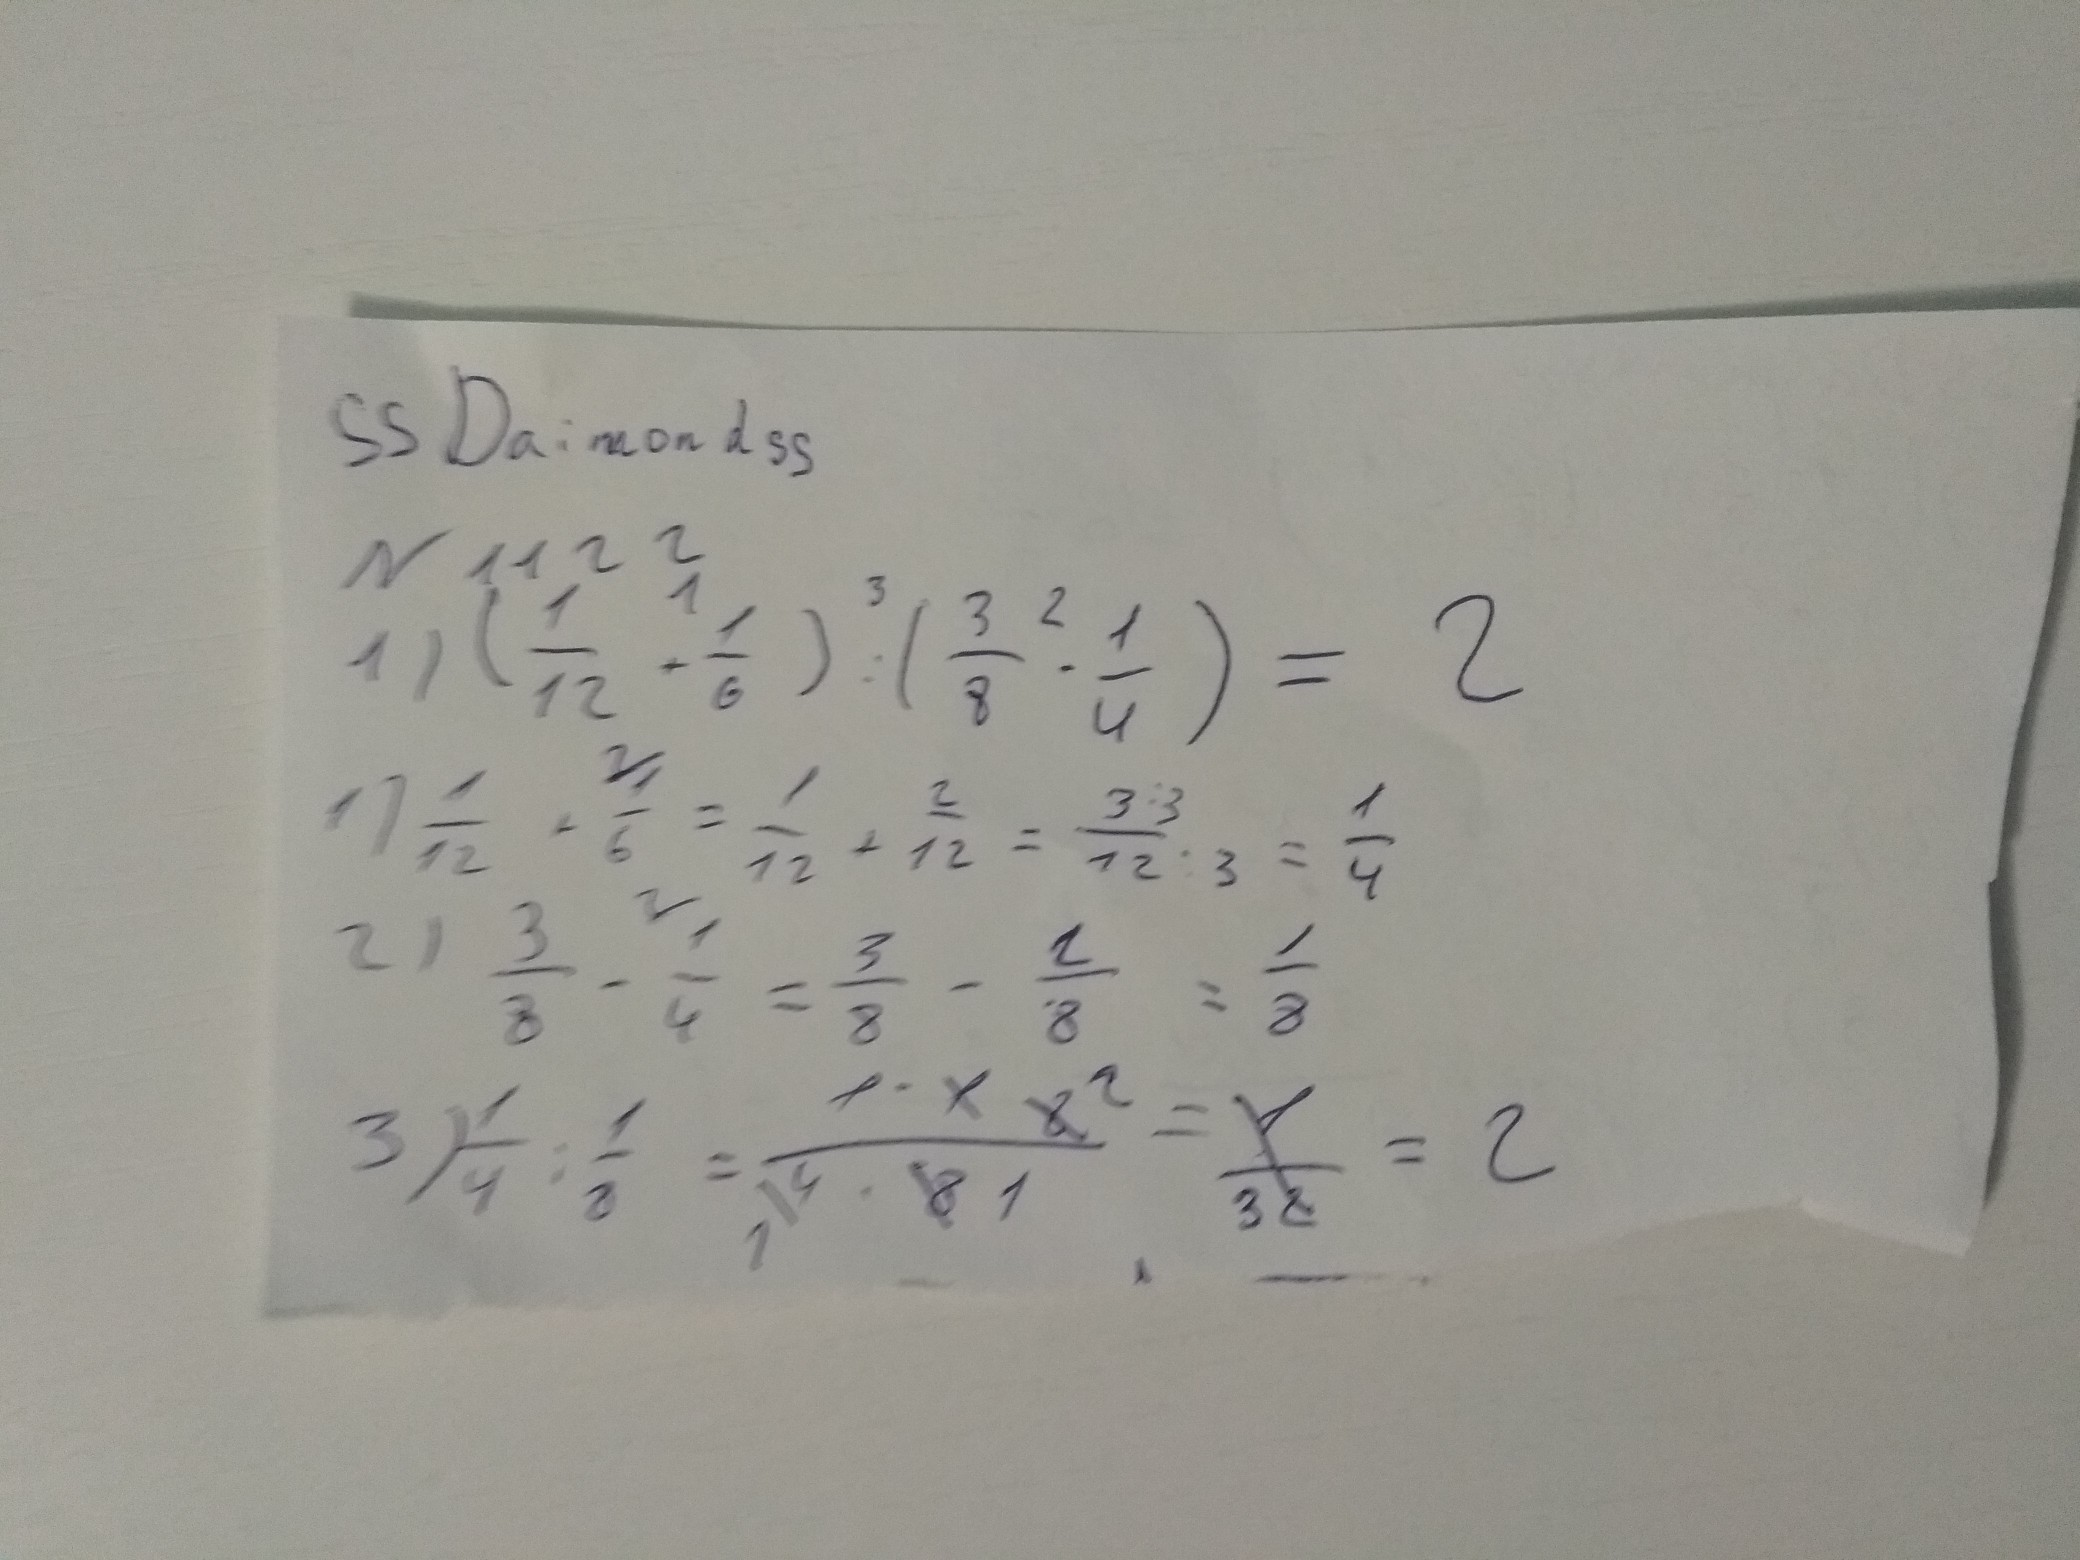 SSDaimondss
N 1122
1) (1/12 + 1/6) : (3/8 - 1/4) = 2
1) 1/12 + 1/6 = 1/12 + 2/12 = 3:3/12:3 = 1/4
2) 3/8 - 1/4 = 3/8 - 2/8 = 1/8
3) 1/4 : 1/8 = 1 · 8 2/4 · 1 = 1/32 = 2